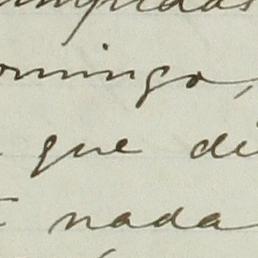 omingo,
que di
nada